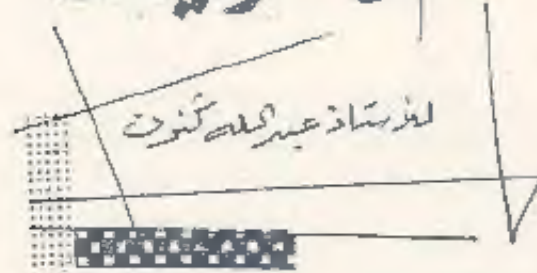 للأستاذ عبد الله كنون